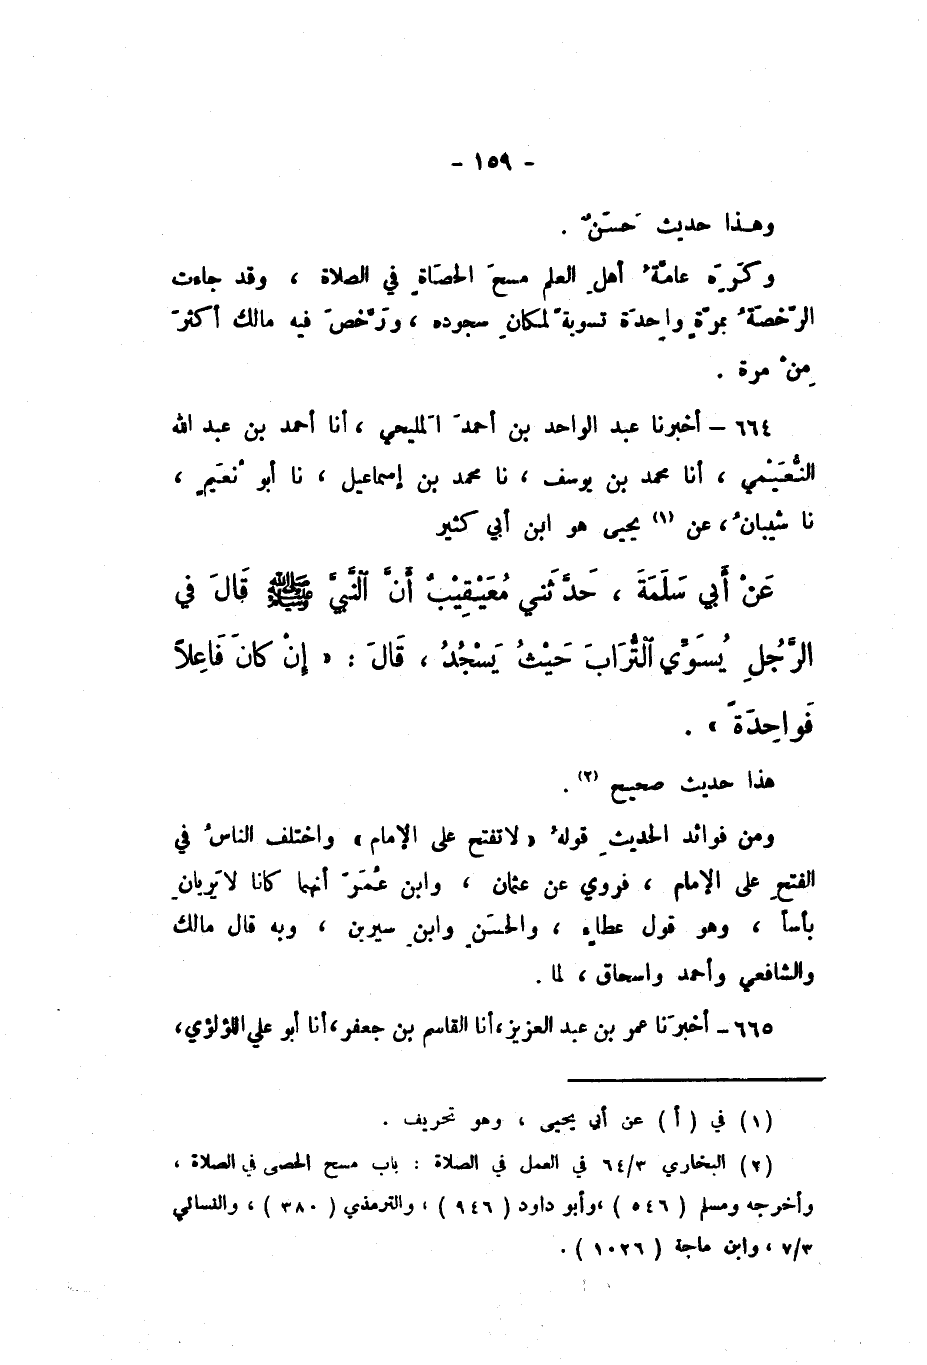 - ١٥٩ -
وهـذا حديث حَسَنٌ .
وكَرِهَ عامَّةُ أهلِ العلم مسحَ الحصَاةِ في الصلاة ، وقد جاءت
الرُّخصَةُ بمرَّةٍ واحِدَة تسويةً لمكانِ سجوده ، ورَخَّصَ فيه مالك أكثرَ
مِنْ مرة .
٦٦٤ – أخبرنا عبد الواحد بن أحمدَ المَليحي ، أنا أحمد بن عبد الله
النُّعَيْمي ، أنا محمد بن يوسف ، نا محمد بن إسماعيل ، نا أبو نُعَيمٍ ،
نا شَيبانُ ، عن (١) يحيى هو ابن أبي كثير
عَنْ أَبي سَلَمَةَ ، حَدَّثَني مُعَيْقِيْبٌ أَنَّ ٱلنَّبيَّ ﷺ قَالَ في
الرَّجُلِ يُسَوِّي ٱلتُّرَابَ حَيْثُ يَسْجُدُ ، قَالَ : « إِنْ كانَ فَاعِلاً
فَواحِدَةً » .
هذا حديث صحيح (٢) .
ومن فوائد الحديثِ قولهُ « لا تفتح على الإمام » واختلف الناسُ في
الفتحِ على الإمام ، فروي عن عثمان ، وابن عُمَرَ أنهما كانا لا يَريانِ
بأساً ، وهو قول عطاءٍ ، والحسَنِ وابنِ سيرين ، وبه قال مالك
والشافعي وأحمد واسحاق ، لما .
٦٦٥ – أخبرَنا عمر بن عبد العزيز ، أنا القاسم بن جعفر ، أنا أبو علي اللؤلؤي ،
(١) في ( أ ) عن أبي يحيى ، وهو تحريف .
(٢) البخاري ٦٤/٣ في العمل في الصلاة : باب مسح الحصى في الصلاة ،
وأخرجه ومسلم ( ٥٤٦ ) ، وأبو داود ( ٩٤٦ ) ، والترمذي ( ٣٨٠ ) ، والنسائي
٧/٣ ، وابن ماجة ( ١٠٢٦ ) .